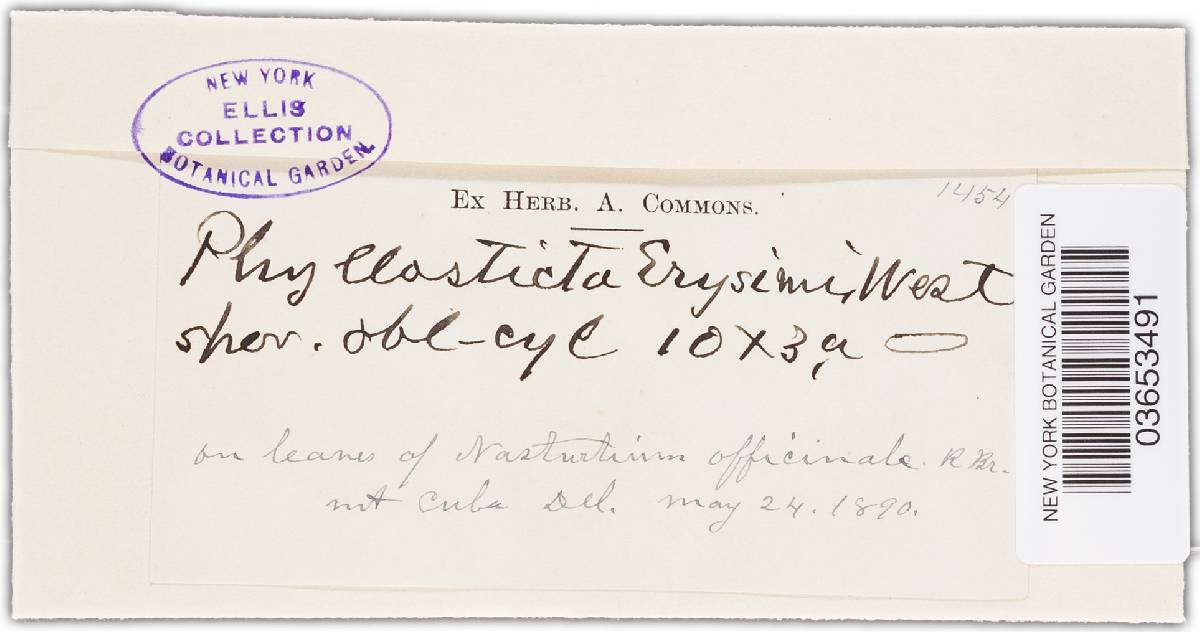 NEW YORK
ELLIS
COLLECTION
BOTANICAL GARDEN
EX HERB. A. COMMONS.
1454
Phyllosticta Erysimi, West
spor. obl-cyl 10 x 3 µ
on leaves of Nasturtium officinale. R Br.
mt Cuba Del. may 24. 1890.
NEW YORK BOTANICAL GARDEN
03653491